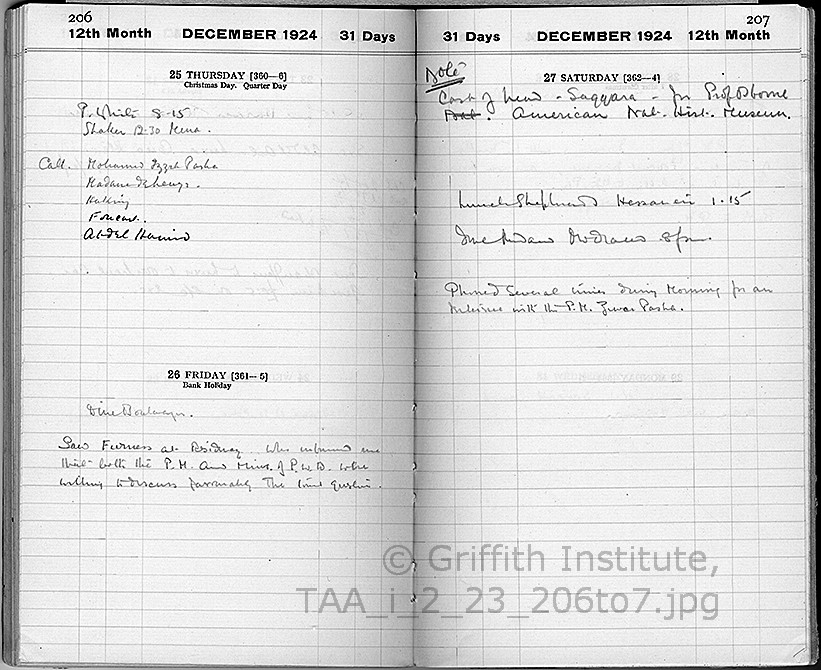 206
12th Month DECEMBER 1924 31 Days
25 THURSDAY [360—6]
Christmas Day. Quarter Day
P. White 8-15
Shaker 12-30 Mena.
Call. Mohamed Izzet Pasha
Madame
Foucart.
Abdel Hamid
26 FRIDAY [361—5]
Bank Holiday
Dine
Saw Furness at Residency who informed me
that both the P.M. and Mins. of P.W.D. were
willing to discuss favourably the tomb question.
207
31 Days DECEMBER 1924 12th Month
Note
27 SATURDAY [362—4]
Cast of head - Saqqara - for Prof Osborne
American Nat. Hist. Museum.
Lunch Shepheards Hassanein 1.15
Dine 8 pm.
Phoned several times during morning for an
interview with the P.M. Ziwar Pasha.
© Griffith Institute,
TAA_i_2_23_206to7.jpg